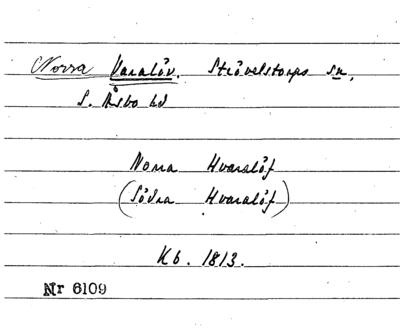 Norra Varalöv. Strövelstorps sn,
S. Åsbo hd
Norra Hvaralöf
(Södra Hvaralöf)
Kb. 1813.
Nr 6109